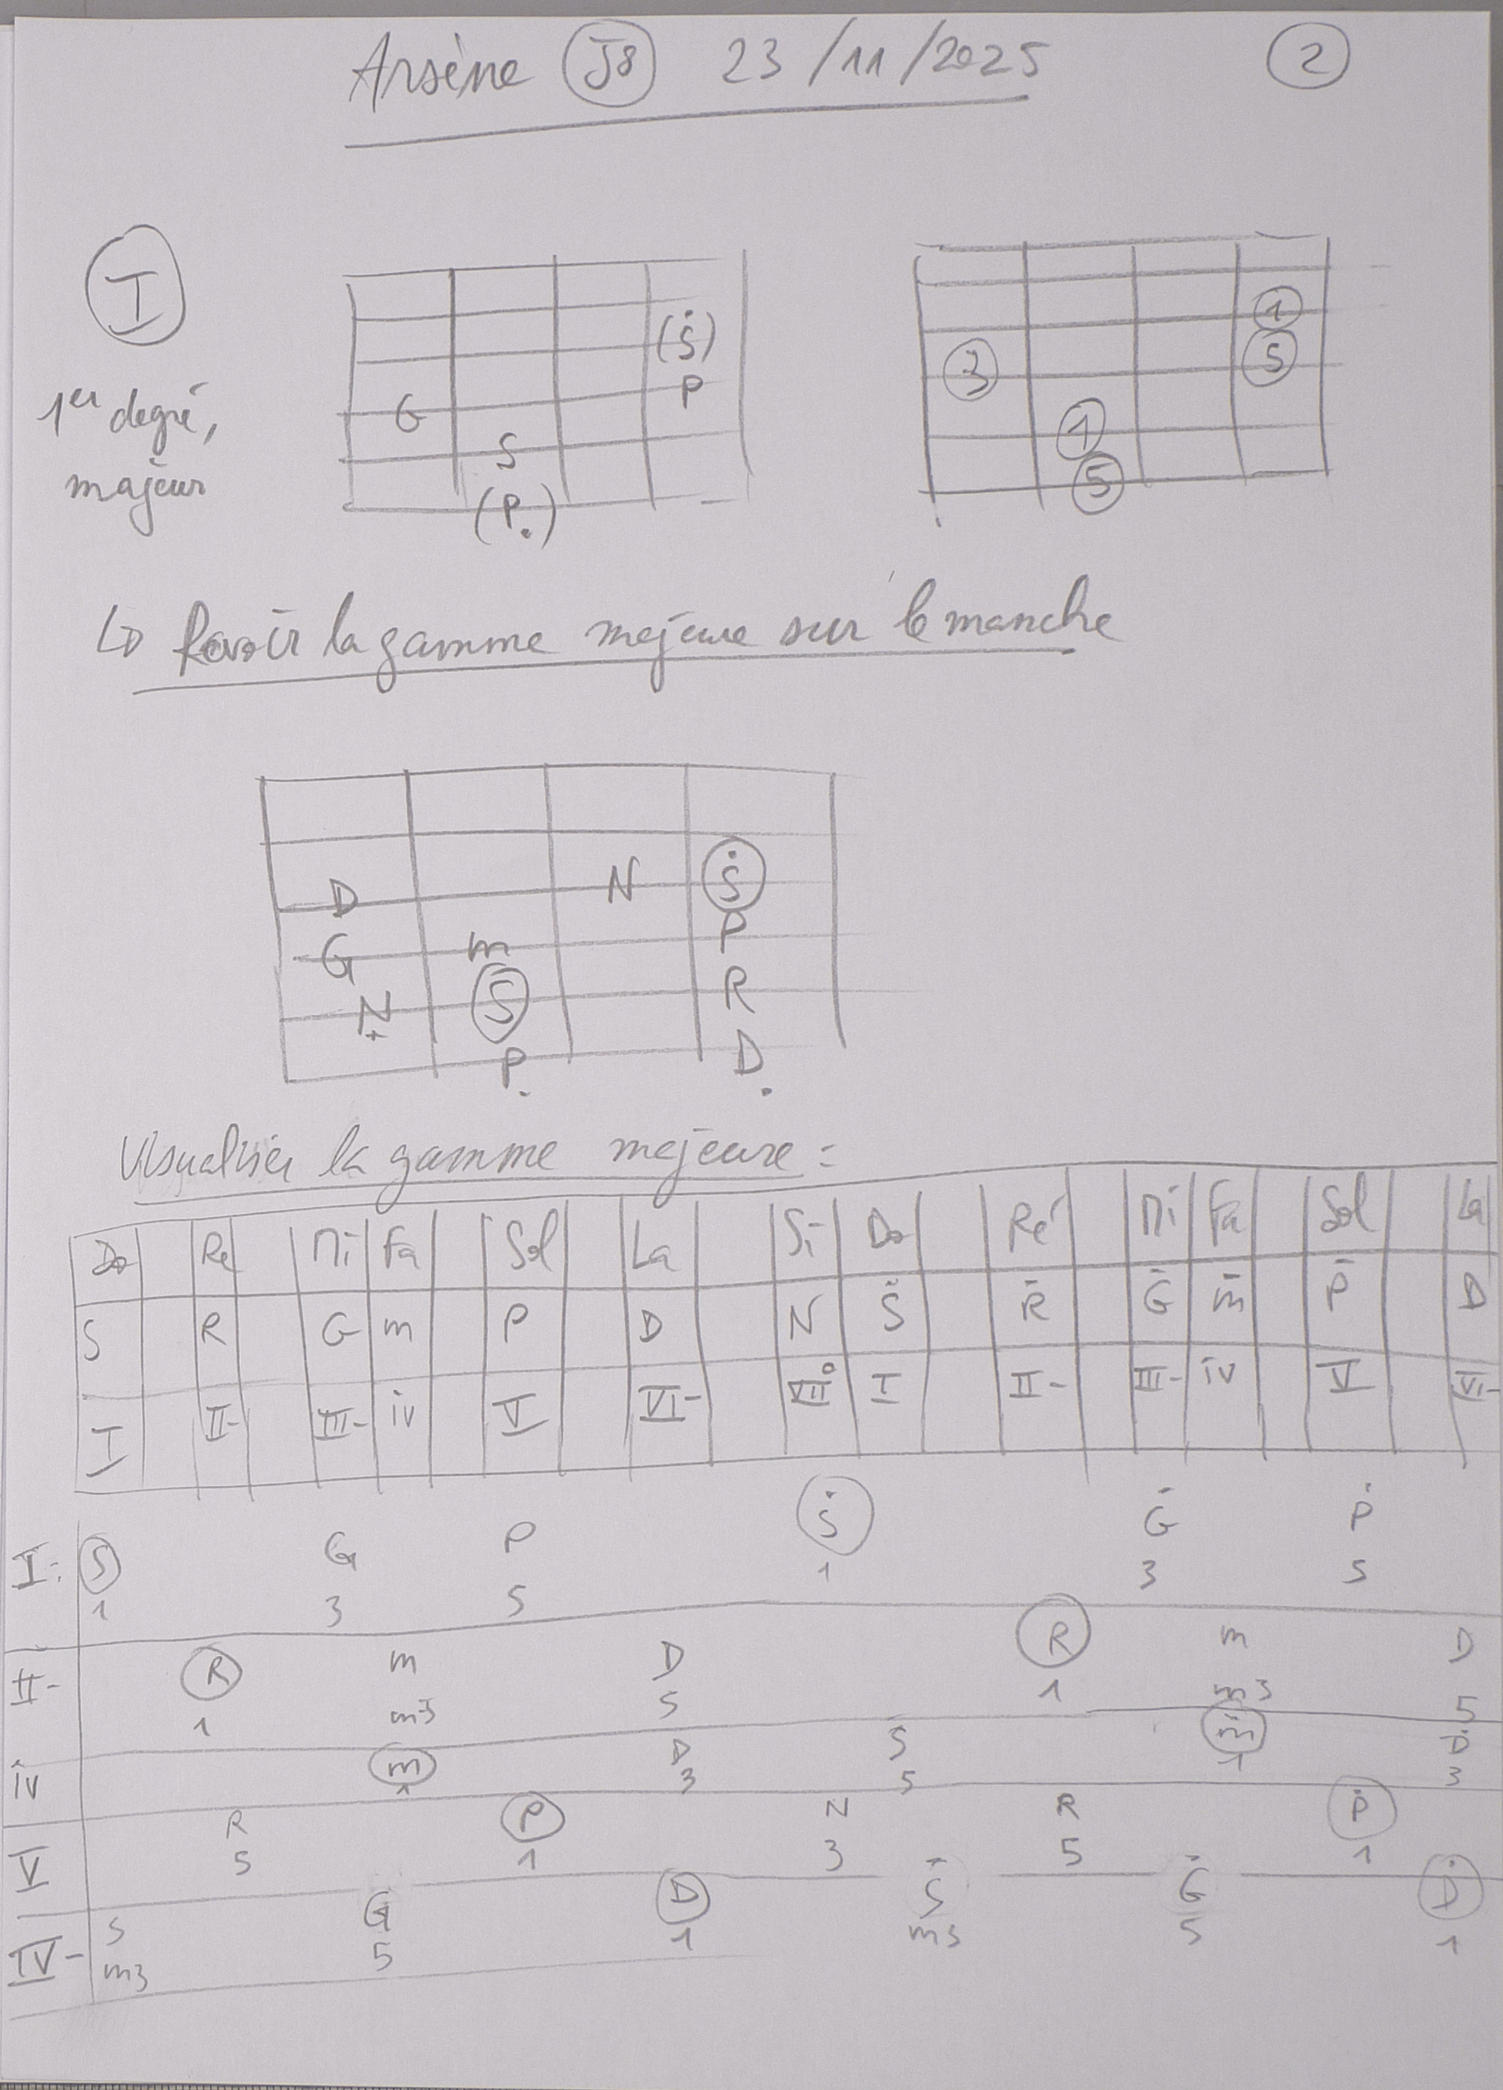 Arsène J8 23/11/2025 2
I
1er degré,
majeur
(Ṡ)
G P
S
(P.)
1
3 5
1
5
↳ Revoir la gamme majeure sur le manche
D N Ṡ
G m P
N S R
P. D.
Visualiser la gamme majeure :
Do Re Mi Fa Sol La Si Do Ré Mi Fa Sol La
S R G m P D N Ṡ Ṙ Ġ ṁ Ṗ D
I II- III- iv V VI- VII° I II- III- iv V VI-
I: S G P Ṡ Ġ Ṗ
1 3 5 1 3 5
II- R m D R m D
1 m3 5 1 m3 5
iv m D S ṁ Ḋ
1 3 5 1 3
V R P N R Ṗ
5 1 3 5 1
IV- S G D Ṡ Ġ Ḋ
m3 5 1 m3 5 1